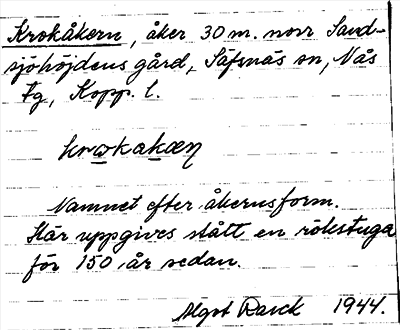 Krokåkern, åker 30 m. norr Sand-
sjöhöjdens gård, Säfsnäs sn, Nås
fg, Kopp. l.
krokakæṇ
Namnet efter åkerns form.
Här uppgives stått en rökstuga
för 150 år sedan.
Algot Rarck 1944.